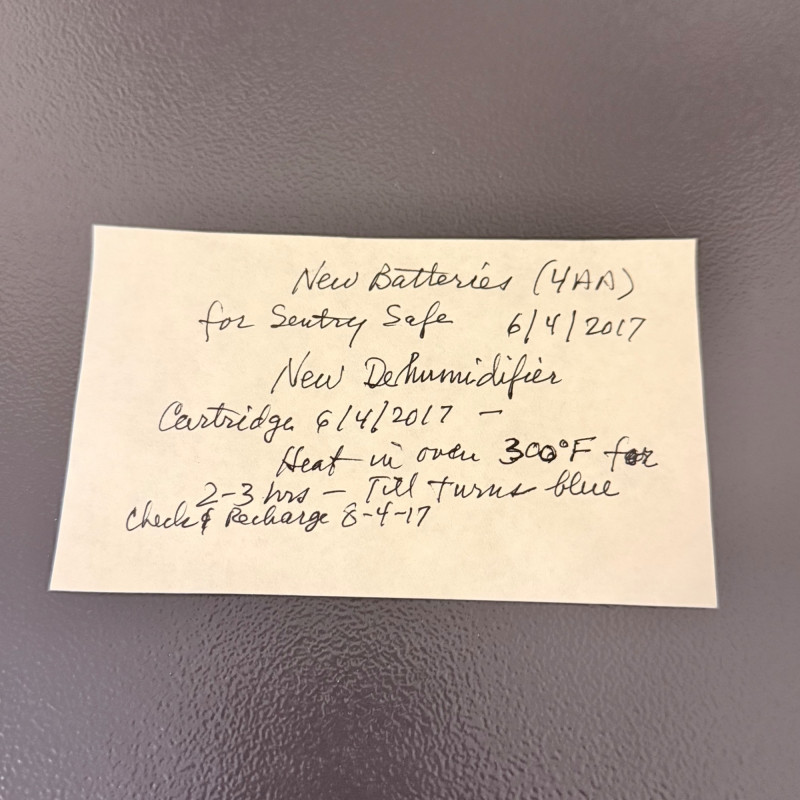 New Batteries (4AA)
for Sentry Safe 6/4/2017
New Dehumidifier
Cartridge 6/4/2017 –
Heat in oven 300°F for
2-3 hrs – Till turns blue
Check & Recharge 8-4-17